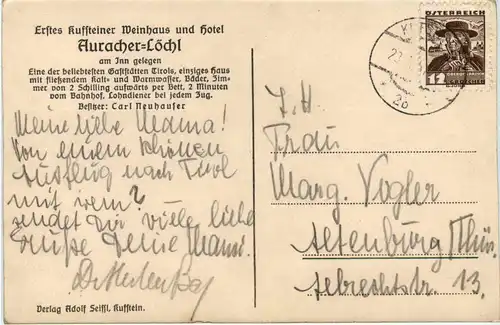 Erstes Kufsteiner Weinhaus und Hotel
Auracher-Löchl
am Inn gelegen
Eine der beliebtesten Gaststätten Tirols, einziges Haus
mit fließendem Kalt- und Warmwasser. Bäder, Zim-
mer von 2 Schilling aufwärts per Bett, 2 Minuten
vom Bahnhof. Lohndiener bei jedem Zug.
Besitzer: Carl Neuhauser
Meine liebe Mama!
Von einem schönen
Ausflug nach Tirol
mit wem?
sendet Dir viele liebe
Grüße Deine
Verlag Adolf Seissl, Kufstein.
ÖSTERREICH
12
GROSCHEN
Frau
Marg. Vogler
Altenburg Thür.
Albrechtstr. 13.